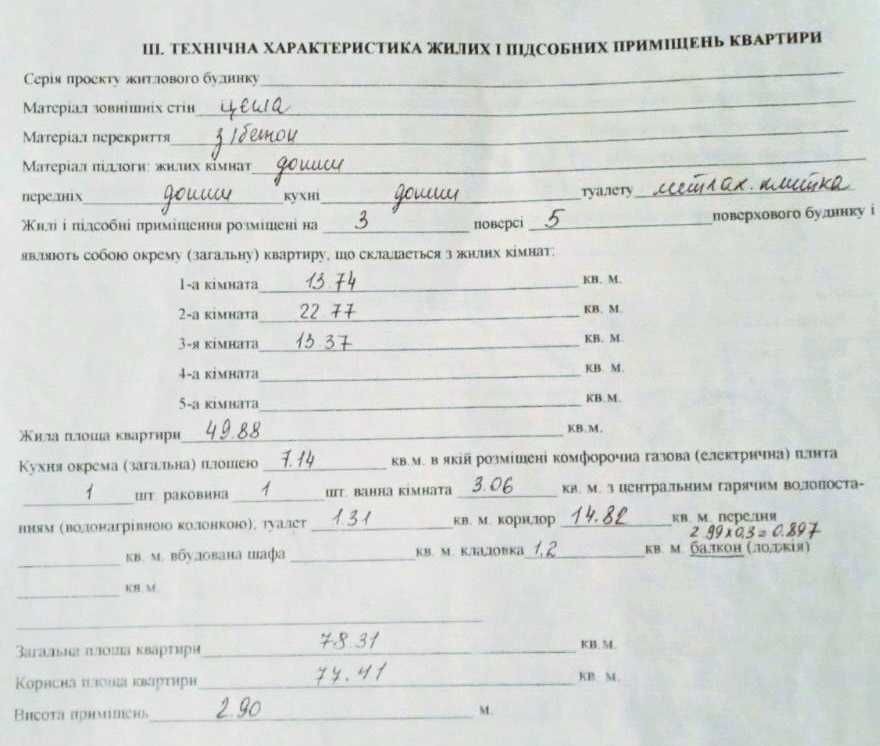 III. ТЕХНІЧНА ХАРАКТЕРИСТИКА ЖИЛИХ І ПІДСОБНИХ ПРИМІЩЕНЬ КВАРТИРИ
Серія проєкту житлового будинку
Матеріал зовнішніх стін цегла
Матеріал перекриття з/бетон
Матеріал підлоги: жилих кімнат дошки
передніх дошки кухні дошки туалету метлах. плитка
Жилі і підсобні приміщення розміщені на 3 поверсі 5 поверхового будинку і
являють собою окрему (загальну) квартиру, що складається з жилих кімнат:
1-а кімната 13.74 кв. м.
2-а кімната 22.77 кв. м.
3-я кімната 13.37 кв. м.
4-а кімната кв. м.
5-а кімната кв.м.
Жила площа квартири 49.88 кв.м.
Кухня окрема (загальна) площею 7.14 кв.м. в якій розміщені комфорочна газова (електрична) плита
1 шт. раковина 1 шт. ванна кімната 3.06 кв. м. з центральним гарячим водопоста-
ням (водонагрівною колонкою), туалет 1.31 кв. м. коридор 14.82 кв. м. передня
2.99х0,3=0.897
кв. м. вбудована шафа кв. м. кладовка 1,2 кв. м. балкон (лоджія)
кв. м.
Загальна площа квартири 78.31 кв.м.
Корисна площа квартири 77.41 кв. м.
Висота приміщень 2.90 м.